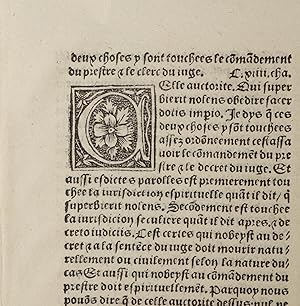 deux choses y sont touchees le cõmãdement
du prestre ⁊ le clerc du iuge. C.xiiii.cha.
CElle auctorite. Qui super
bierit nolens obedire sacer
dotis impio. Je dys q̃ ces
deux choses y sõt touchees
assez ordõneement cestassa
uoir le comandemẽt du pre
stre ⁊ le decret du iuge. Et
aussi esdictes parolles est premierement tou
chee la iurisdiction espirituelle quant il dit/ q̃
superbierit nolens. Secõdement est touchee
la iurisdicion seculiere quãt il dit apres. ⁊ de
creto iudicis. Cest certes qui nobeyst au de-
cret ⁊ a la sentẽce du iuge doit mourir natu-
rellement ou ciuilement selon la nature du
cas Et aussi qui nobeyst au cõmãdement du
prestre doit espirituellemẽt. Parquoy nous
pouõs dire q̃ de celle auctorite